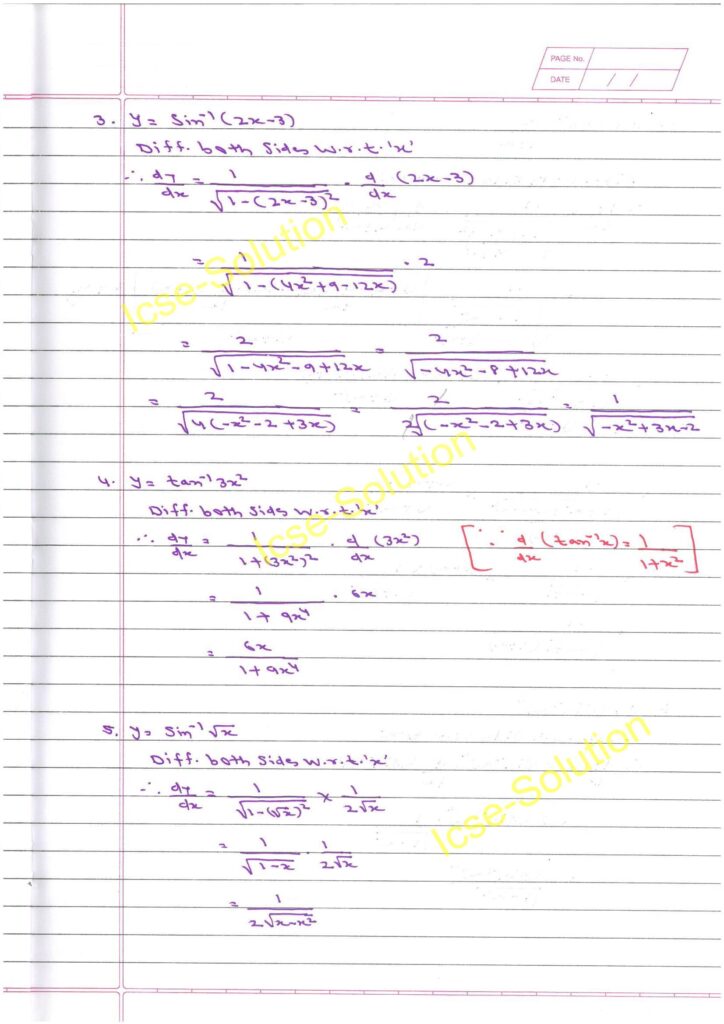 PAGE No.
DATE / /
3. y = Sin⁻¹(2x-3)
Diff. both Sides w.r.t. 'x'
∴ dy/dx = 1/√(1-(2x-3)²) · d/dx (2x-3)
= 1/√(1-(4x²+9-12x)) · 2
= 2/√(1-4x²-9+12x) = 2/√(-4x²-8+12x)
= 2/√(4(-x²-2+3x)) = 2/2√(-x²-2+3x) = 1/√(-x²+3x-2)
4. y = tan⁻¹3x²
Diff. both Sides w.r.t. 'x'
∴ dy/dx = 1/(1+(3x²)²) · d/dx (3x²) [∵ d/dx (tan⁻¹x) = 1/(1+x²)]
= 1/(1+9x⁴) · 6x
= 6x/(1+9x⁴)
5. y = Sin⁻¹√x
Diff. both Sides w.r.t. 'x'
∴ dy/dx = 1/√(1-(√x)²) × 1/(2√x)
= 1/√(1-x) · 1/(2√x)
= 1/(2√(x-x²))
Icse-Solution
Icse-Solution
Icse-Solution